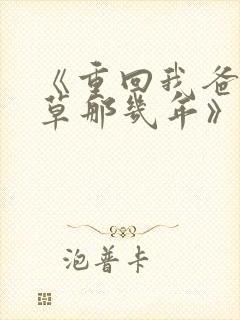 《重回我爸
草那几年》
泡普卡